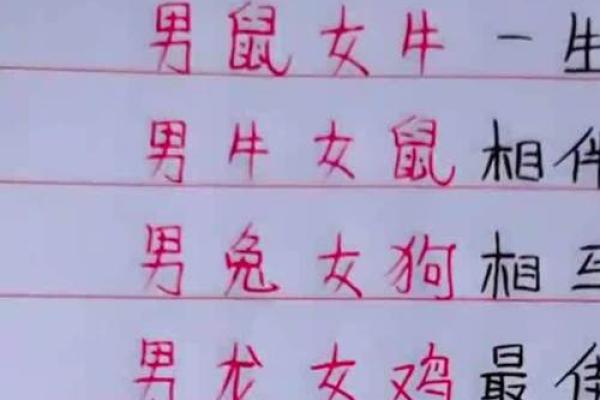 男鼠女牛一生
男牛女鼠相伴
男兔女狗相互
男龙女鸡最佳